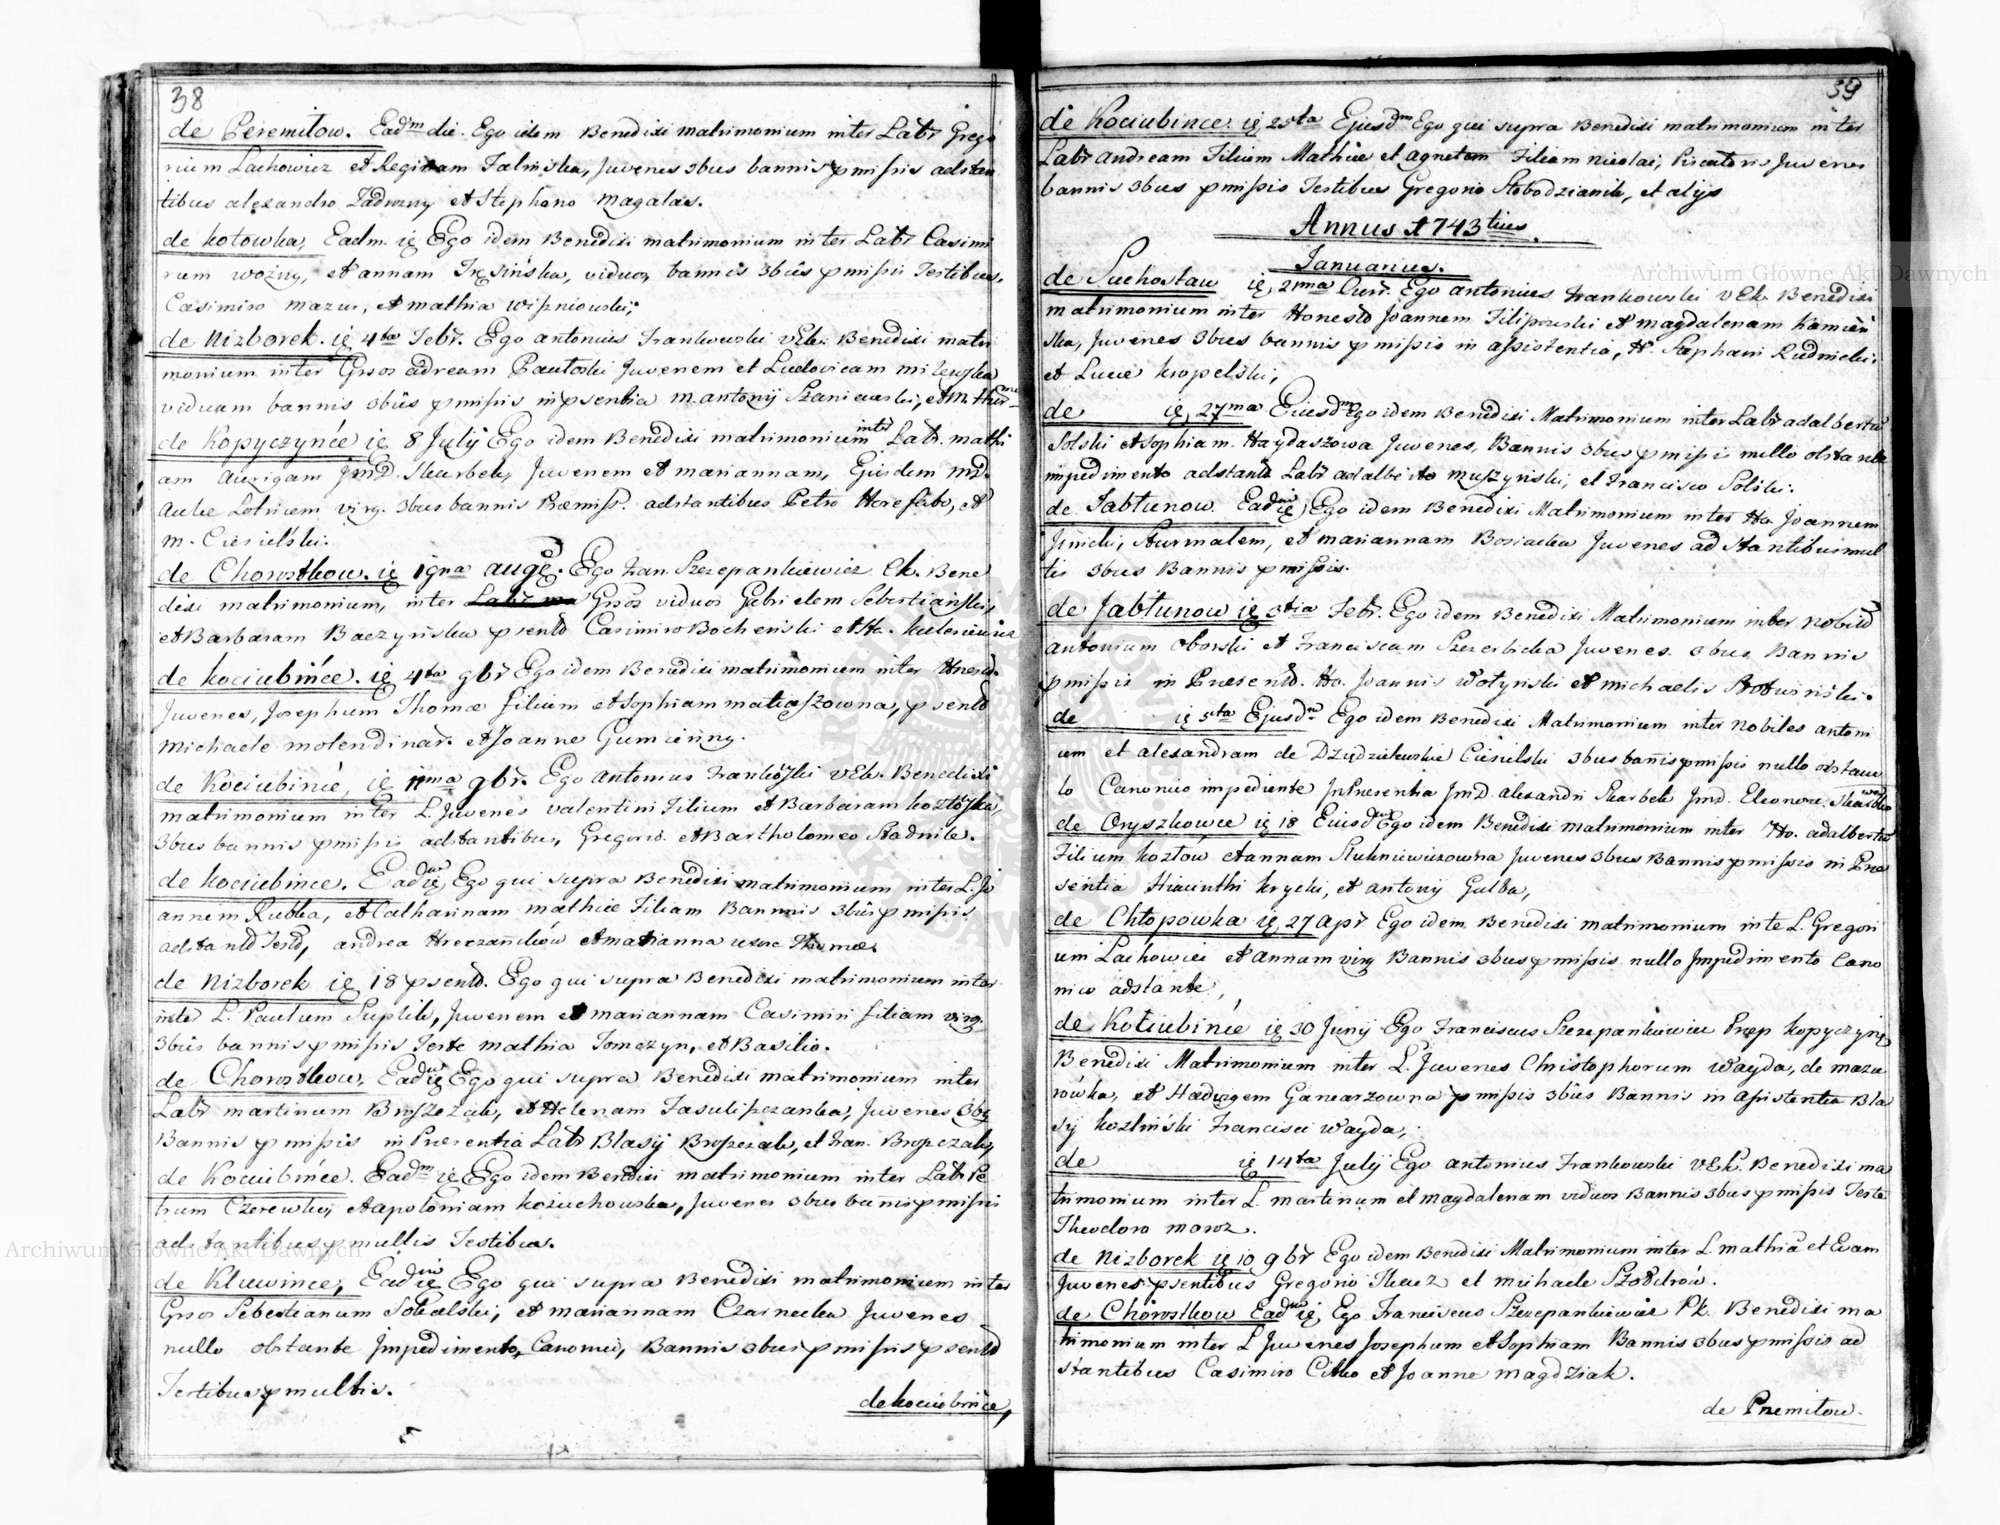 38
de Peremitow. Eadm die. Ego idem Benedixi matrimonium inter Labr Grego
rium Lachowicz et Reginam Talmska, juvenes 3bus bannis pmissis adstan
tibus alexandro Zadwrny et Stephano Magalas.
de Kotowka, Eadm. ię Ego idem Benedixi matrimonium inter Labr Casimi
rum woźny, et annam viduos, bannis 3bus pmissis Testibus,
Casimiro mazur, et mathia wiszniowski;
de Nizborek. ię 4ta Febr. Ego antonius Frankowski VEk. Benedixi matri
monium inter Gsos adream Pautoski Juvenem et Ludovicam milewska
viduam bannis 3bus pmissis in psentia M. antonij Szaniawski,
de Kopyczynce ię 8 Julij Ego idem Benedixi matrimonium inter Labr. mathi
am aurigam JmD. Skarbek, Juvenem et mariannam, Ejusdem mD.
aulae Lotricem virg. 3bus bannis Præmiss. adstantibus Petro et
m. Ciesielski.
de Chorostkow. ię 19na aug. Ego Fran. Szczepankiewicz Ck. Bene
dixi matrimonium, inter Gsos viduos Gabrielem Sebestianski,
et Barbaram Baczyńska psentb Casimiro Bochenski et
de Kociubińce. ię 4ta 9br Ego idem Benedixi matrimonium inter Honesto.
Juvenes, Josephum Thomæ filium et Sophiam matiaszowna, psentb
Michaele molendinar. et Joanne Gumienny.
de Kociubincé, ię 11ma 9br. Ego Antonius Frankoski VEk. Benedixi
matrimonium inter L. Juvenes valentini Filium et Barbaram kozłoska,
3bus bannis pmissis adstantibus, Gregorio. et Bartholomeo Stadnik.
de Kociubince. Eadm ię Ego qui supra Benedixi matrimonium inter L. Jo
annem Rubka, et Catharinam mathiæ Filiam Bannis 3bus pmissis
adstantb Testb, andrea et marianna uxore Thomæ.
de Nizborek ię 18 psentb. Ego qui supra Benedixi matrimonium inter
inter L. Paulum Suplik, Juvenem et mariannam Casimiri filiam virg.
3bus bannis pmissis Teste mathia Tomczyn, et Basilio.
de Chorostkow, Eadm ię Ego qui supra Benedixi matrimonium inter
Labr martinum Broszczak, et Helenam Juvenes 3bus
Bannis pmissis in Præsentia Labr Blasij Broszczak, et Fran. Broszczak,
de Kociubińce. Eadm ię Ego idem Benedixi matrimonium inter Labr Pe
trum Czerewko, et apoloniam kozuchowska, Juvenes 3bus banis pmissis
adstantibus pmultis Testibus.
de Kluwince, Eadm ię Ego qui supra Benedixi matrimonium inter
Gsos Sebestianum Sokalski, et mariannam Czarnecka Juvenes
nullo obstante Jmpedimento, Canonico, Bannis 3bus pmissis psentb
Testibus pmultis.
de kociubińce,
39
de Kociubince. ię 25ta Ejusdm Ego qui supra Benedixi matrimonium inter
Labr andream Filium Mathiæ et agnetem Filiam nicolai, Piscatoris Juvenes
bannis 3bus pmissis Testibus Gregorio Słobodzianik, et alijs
Annus 1743tius.
Januarius.
de Suchostaw ię 21ma Curr. Ego antonius Frankowski VEk. Benedixi
matrimonium inter Honestb Joannem Filipowski et magdalenam Kamień
ska, Juvenes 3bus bannis pmissis in assistentia, H. Stephani Rudnicki.
et Luciæ kropelski,
de ię 27ma Ejusdm Ego idem Benedixi Matrimonium inter Labr adalbertu
Solski et Sophiam Haydaszowa Juvenes, Bannis 3bus pmissis nullo obstante
impedimento adstantb Labr adalberto muszyński, et Francisco Solski.
de Jabłunow. Eadm ię, Ego idem Benedixi Matrimonium inter Ho. Joannem
et mariannam Bosiacka Juvenes adstantibus mul
tis 3bus Bannis pmissis.
de Jabłunow ię 3tia Febr. Ego idem Benedixi Matrimonium inter Nobilb
antonium oborski et Franciscam Szczerbicka Juvenes. 3bus Bannis
pmissis in Præsentb. Ho. Joannis wołynski et michaelis
de ię 5ta Ejusdm Ego idem Benedixi Matrimonium inter nobiles antoni
um et alexandram de Ciesielski 3bus banis pmissis nullo obstan
to Canonico impediente Jn Præsentia JmD. alexandri Skarbek JmD. Eleonoræ. Skarbkowa
de Oryszkowce ię 18 Ejusdm Ego idem Benedixi matrimonium inter Ho. adalbertu
Filium kozłow et annam Stukniewiczowna Juvenes 3bus Bannis pmissis in Præ
sentia Hiacinthi krycki, et antonij Gulba,
de Chłopowka ię 27 apr. Ego idem Benedixi matrimonium inte L. Gregori
um Lachowicz et annam virg Bannis 3bus pmissis nullo Jmpedimento Cano
nico adstante,
de Kociubińcé ię 30 Junij Ego Franciscus Szczepankiewicz Præp kopyczyn
Benedixi Matrimonium inter L. Juvenes Christophorum Wayda, de mazu
rówka, et Hedvigem Gancarzowna pmissis 3bus Bannis in assistentia Bla
sij kozłiński Francisci Wayda,
de ię 14ta Julij Ego antonius Frankowski VEk. Benedixi ma
trimonium inter L. martinum et magdalenam viduos Bannis 3bus pmissis Teste
Theodoro moroz.
de Nizborek ię 10 9br Ego idem Benedixi Matrimonium inter L. mathia et Evam
Juvenes psentibus Gregorio Tkacz et michaele
de Chorostkow Eadm ię, Ego Franciscus Szczepankiewicz Pk. Benedixi ma
trimonium inter L Juvenes Josephum et Sophiam Bannis 3bus pmissis ad
stantibus Casimiro Citko et Joanne magdziak.
de Premitow.
Archiwum Główne Akt Dawnych
Archiwum Główne Akt Dawnych